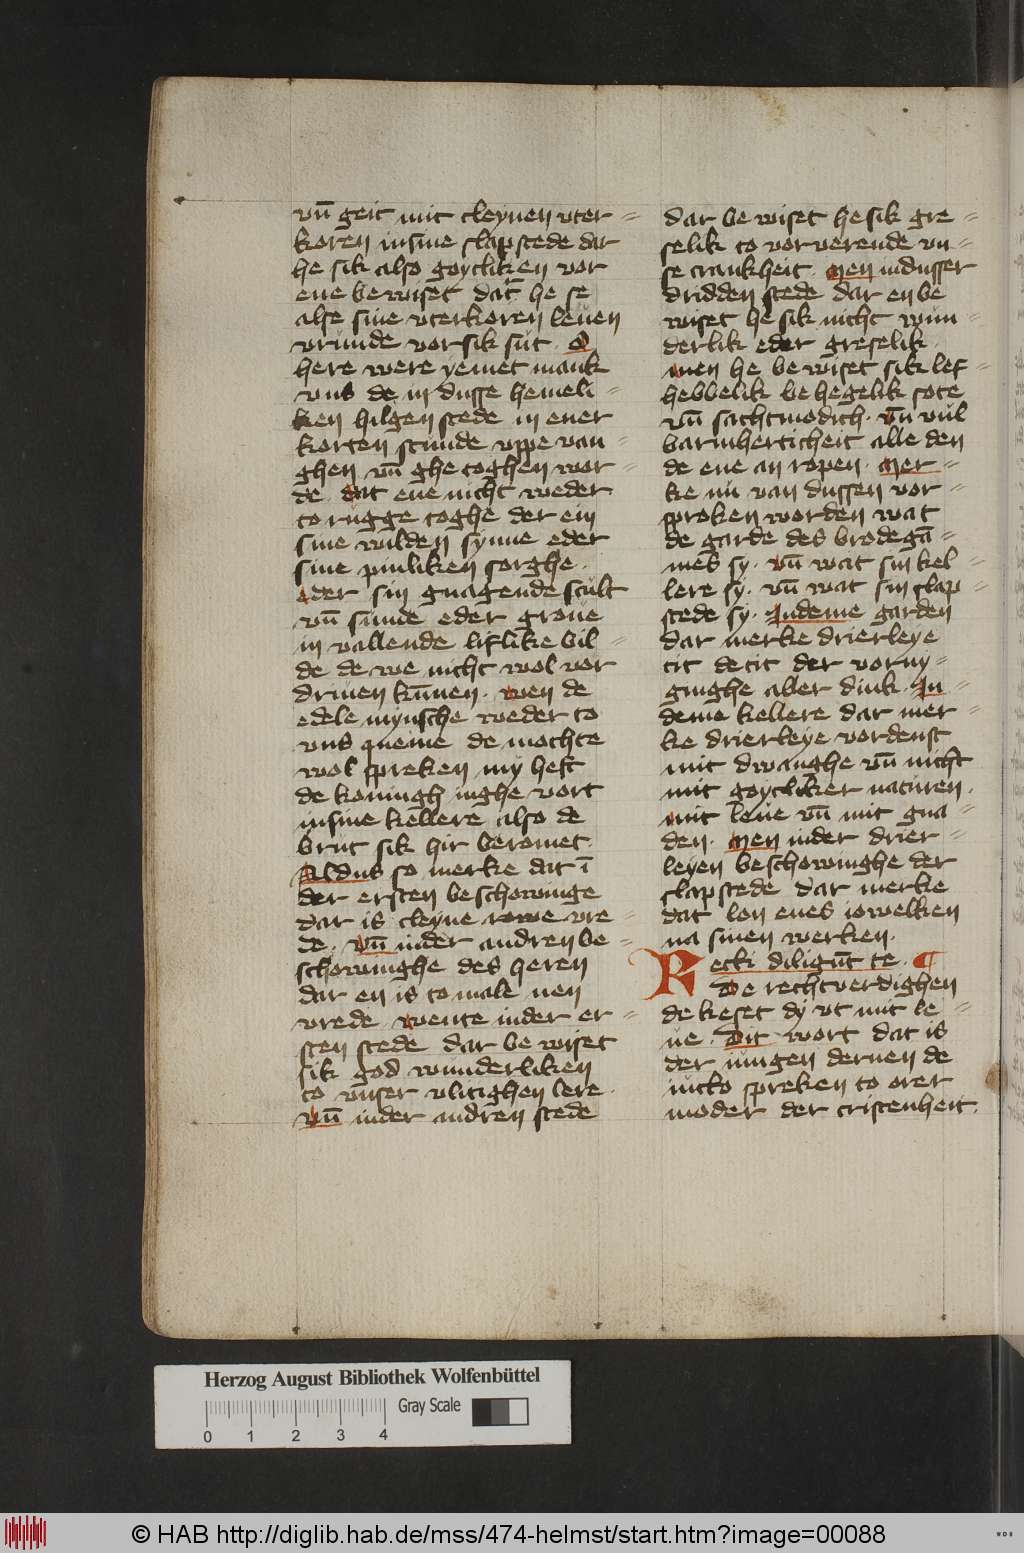 vn̄ geit mit cleynen vter=
koren in sine slapstede dar
he sik also goytliken vor
ene bewiset dat he se
alse sine vterkoren leuen
vrunde vor sik sut. O
here were yemet mank
vns de in dusse hemeli=
ken hilgen stede in ener
korten stunde vppe van=
ghen vn̄ ghetoghen wor=
de. dat ene nicht weder
to rugge toghe der ein
sine wilden synne eder
sine pinliken sorghe.
eder sin gnagende scult
vn̄ sunde eder groue
in vallende liflike bil=
de de we nicht wol vor
driuen kūnen. wen de
edele mynsche weder to
vns queme de mochte
wol spreken my heft
de koningh inghe vort
in sine kellere also de
brut sik hir beromet.
Aldus so merke dat ī
der ersten beschowinge
dar is cleyne rowe vre=
de. vn̄ in der andren be=
schowinghe des heren
dar en is to male nen
vrede wente in der er=
sten stede dar bewiset
sik god wunderliken
to vnser vlitighen lere.
vn̄ in der andren stede
dar bewiset he sik gre=
selik to vorverende vn=
se crankheit. Men in dusser
dridden stede dar en be
wiset he sik nicht wun=
derlik eder greselik.
men he bewiset sik lef=
hebbelik behegelik sote
vn̄ sachtmodich. vn̄ vul
barmherticheit alle den
de ene an ropen. Mer=
ke nu van dussen vor=
sproken worden wat
de garde des brodegā=
mes sy. vn̄ wat sin kel=
lere sy. vn̄ wat sin slap=
stede sy. In deme garden
dar merke drierleye
tit de tit der vorny=
ginghe aller dink. In=
deme kellere dar mer=
ke drierleye vordenst
mit dwanghe vn̄ nicht
mit goytliker naturen.
mit leue vn̄ mit gna=
den. Men in der drier=
leyen beschowinghe der
slapstede dar merke
dat lon enes iowelken
na sinen werken.
Recti diligūt te. ¶
De rechtverdighen
de keset dy vt mit le=
ue. Dit wort dat is
der iungen dernen de
nicko spreken to orer
moder der cristenheit.
Herzog August Bibliothek Wolfenbüttel
Gray Scale
0 1 2 3 4
© HAB http://diglib.hab.de/mss/474-helmst/start.htm?image=00088
WDB